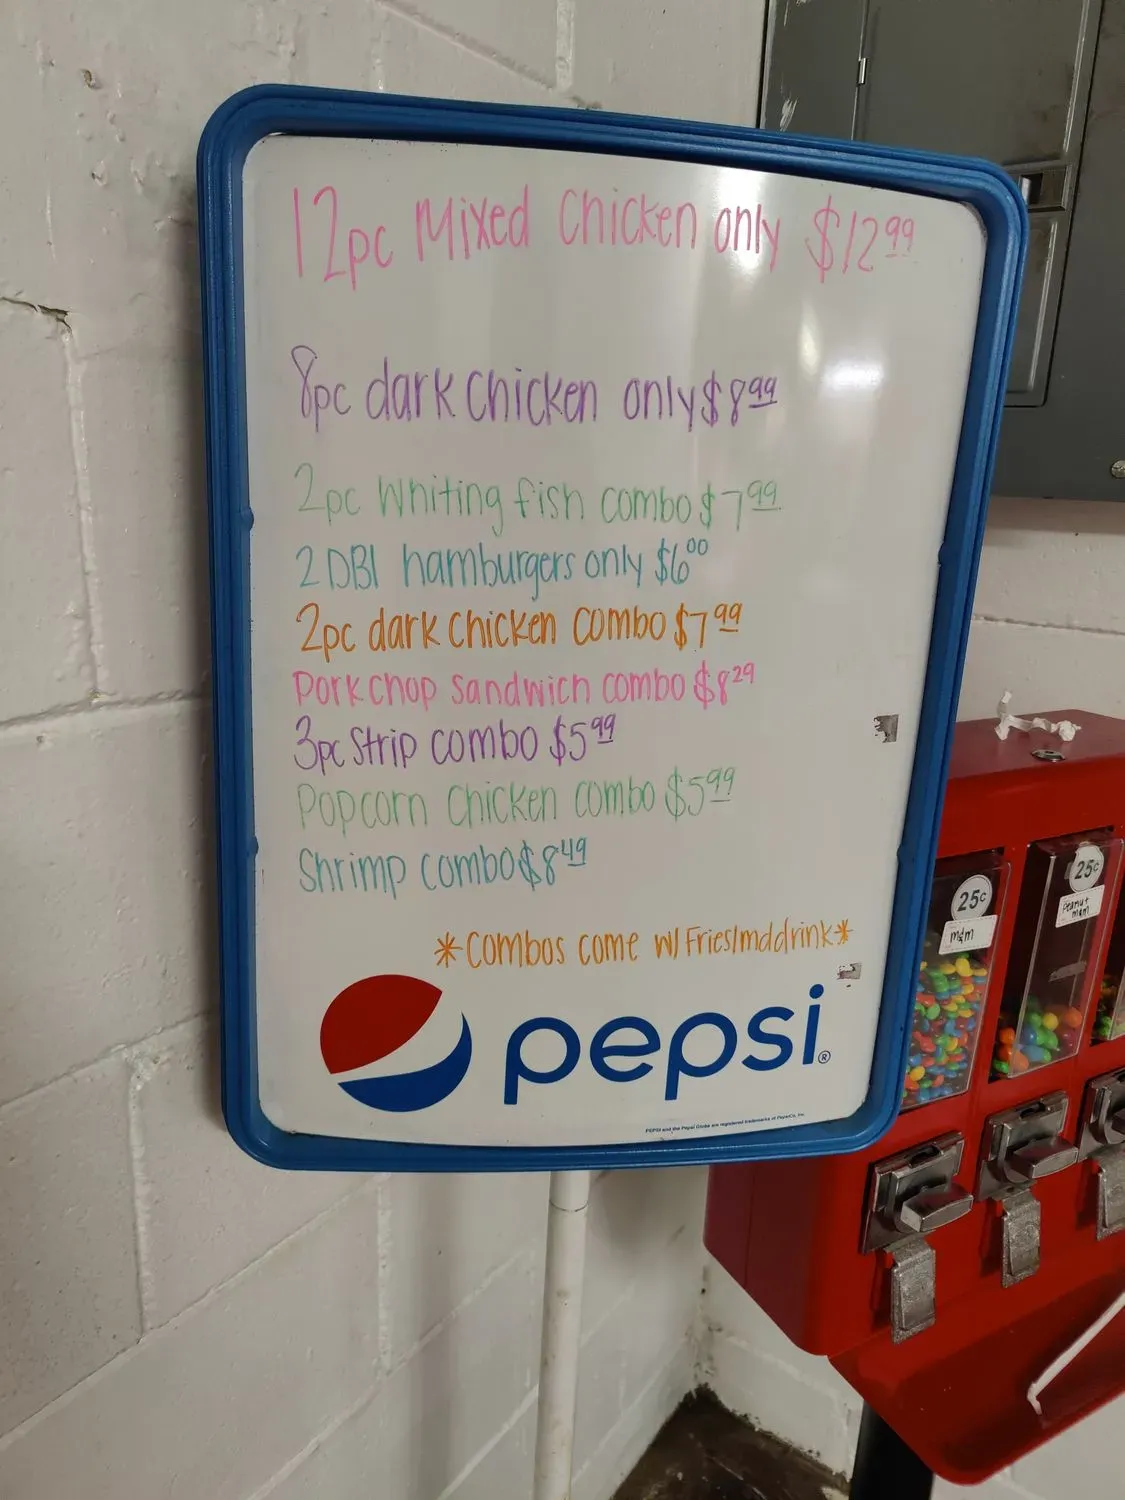 12pc Mixed Chicken only $12.99
8pc dark chicken only $8.99
2pc Whiting fish combo $7.99
2 DBl hamburgers only $6.00
2pc dark chicken combo $7.99
Porkchop sandwich combo $8.29
3pc Strip combo $5.99
Popcorn Chicken combo $5.99
Shrimp combo $8.49
*Combos come w/ Fries/mddrink*
pepsi®
PEPSI and the Pepsi Globe are registered trademarks of PepsiCo, Inc.
25¢
m&m
25¢
Peanut
m&m